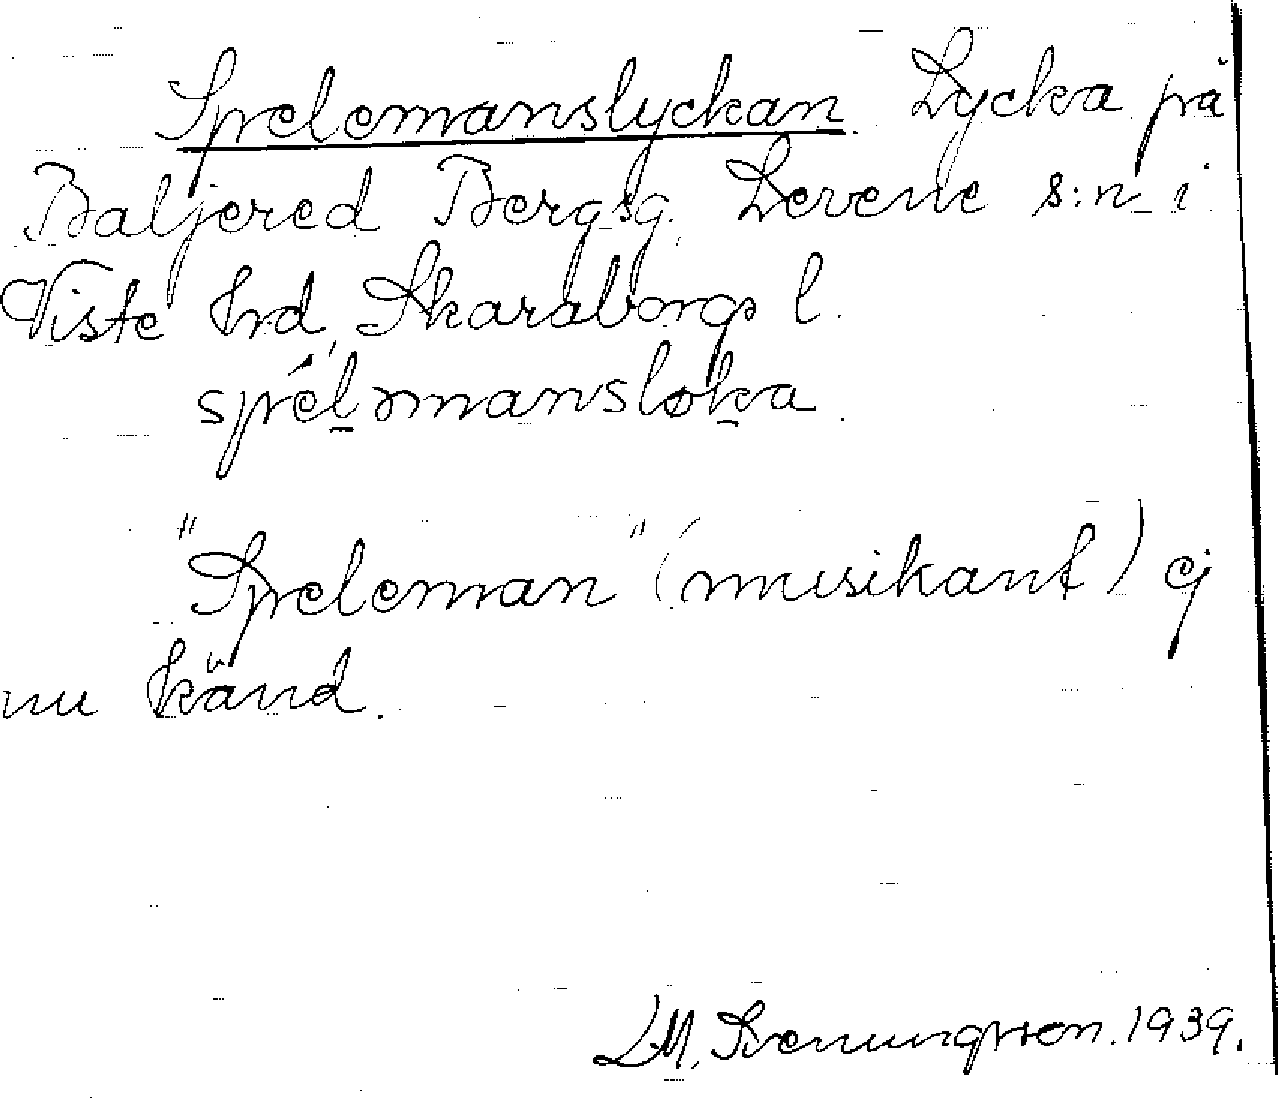 Spelemanslyckan. Lycka på
Baljered Bergsg. Levene s:n i
Viste hrd, Skaraborgs l.
spélmansløka.
"Speleman" (musikant) ej
nu känd.
LM. Svenungsson. 1939.